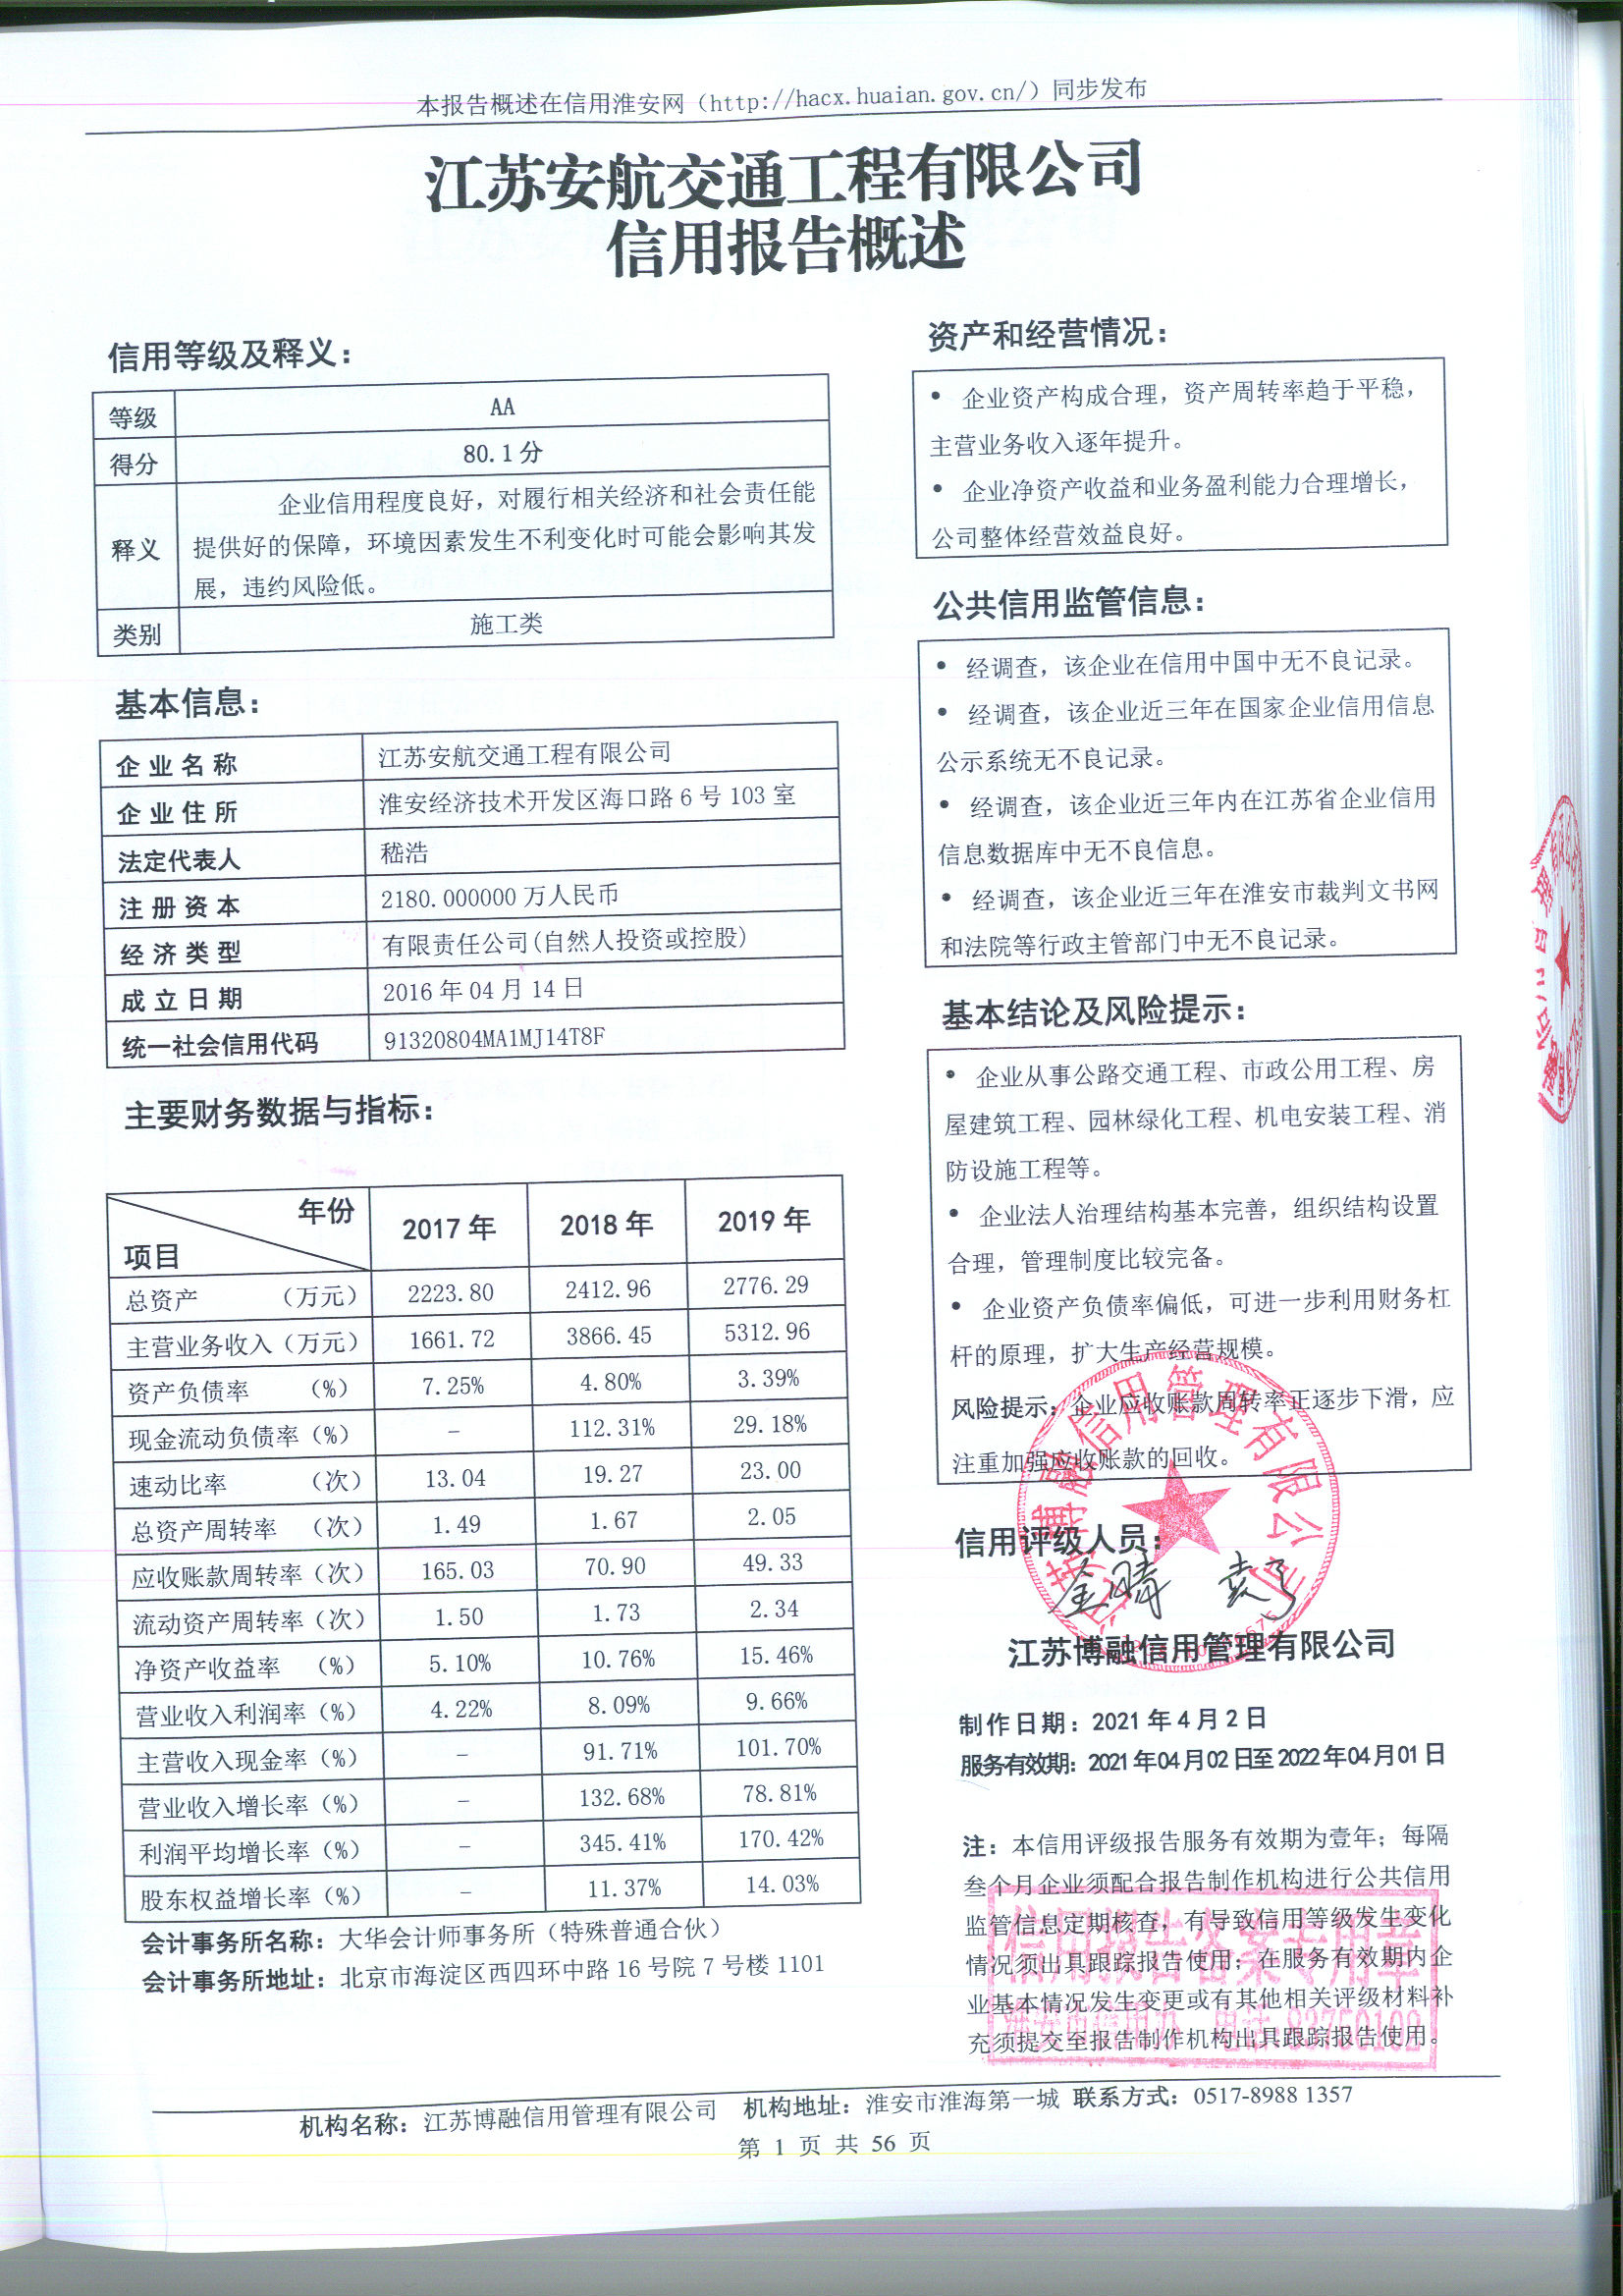 本报告概述在信用淮安网（http://hacx.huaian.gov.cn/）同步发布
江苏安航交通工程有限公司
信用报告概述
信用等级及释义：
等级 AA
得分 80.1 分
释义 企业信用程度良好，对履行相关经济和社会责任能
提供好的保障，环境因素发生不利变化时可能会影响其发
展，违约风险低。
类别 施工类
基本信息：
企业名称 江苏安航交通工程有限公司
企业住所 淮安经济技术开发区海口路 6 号 103 室
法定代表人 嵇浩
注册资本 2180.000000 万人民币
经济类型 有限责任公司(自然人投资或控股)
成立日期 2016 年 04 月 14 日
统一社会信用代码 91320804MA1MJ14T8F
主要财务数据与指标：
年份 项目 2017 年 2018 年 2019 年
总资产 （万元） 2223.80 2412.96 2776.29
主营业务收入（万元） 1661.72 3866.45 5312.96
资产负债率 （%） 7.25% 4.80% 3.39%
现金流动负债率（%） - 112.31% 29.18%
速动比率 （次） 13.04 19.27 23.00
总资产周转率 （次） 1.49 1.67 2.05
应收账款周转率（次） 165.03 70.90 49.33
流动资产周转率（次） 1.50 1.73 2.34
净资产收益率 （%） 5.10% 10.76% 15.46%
营业收入利润率（%） 4.22% 8.09% 9.66%
主营收入现金率（%） - 91.71% 101.70%
营业收入增长率（%） - 132.68% 78.81%
利润平均增长率（%） - 345.41% 170.42%
股东权益增长率（%） - 11.37% 14.03%
会计事务所名称：大华会计师事务所（特殊普通合伙）
会计事务所地址：北京市海淀区西四环中路 16 号院 7 号楼 1101
资产和经营情况：
• 企业资产构成合理，资产周转率趋于平稳，
主营业务收入逐年提升。
• 企业净资产收益和业务盈利能力合理增长，
公司整体经营效益良好。
公共信用监管信息：
• 经调查，该企业在信用中国中无不良记录。
• 经调查，该企业近三年在国家企业信用信息
公示系统无不良记录。
• 经调查，该企业近三年内在江苏省企业信用
信息数据库中无不良信息。
• 经调查，该企业近三年在淮安市裁判文书网
和法院等行政主管部门中无不良记录。
基本结论及风险提示：
• 企业从事公路交通工程、市政公用工程、房
屋建筑工程、园林绿化工程、机电安装工程、消
防设施工程等。
• 企业法人治理结构基本完善，组织结构设置
合理，管理制度比较完备。
• 企业资产负债率偏低，可进一步利用财务杠
杆的原理，扩大生产经营规模。
风险提示：企业应收账款周转率正逐步下滑，应
注重加强应收账款的回收。
江苏博融信用管理有限公司
信用评级人员：
江苏博融信用管理有限公司
制作日期：2021 年 4 月 2 日
服务有效期：2021 年 04 月 02 日至 2022 年 04 月 01 日
注：本信用评级报告服务有效期为壹年；每隔
叁个月企业须配合报告制作机构进行公共信用
监管信息定期核查，有导致信用等级发生变化
情况须出具跟踪报告使用；在服务有效期内企
业基本情况发生变更或有其他相关评级材料补
充须提交至报告制作机构出具跟踪报告使用。
信用报告备案专用章
淮安市信用办 电话:83750102
机构名称：江苏博融信用管理有限公司 机构地址：淮安市淮海第一城 联系方式：0517-8988 1357
第 1 页 共 56 页